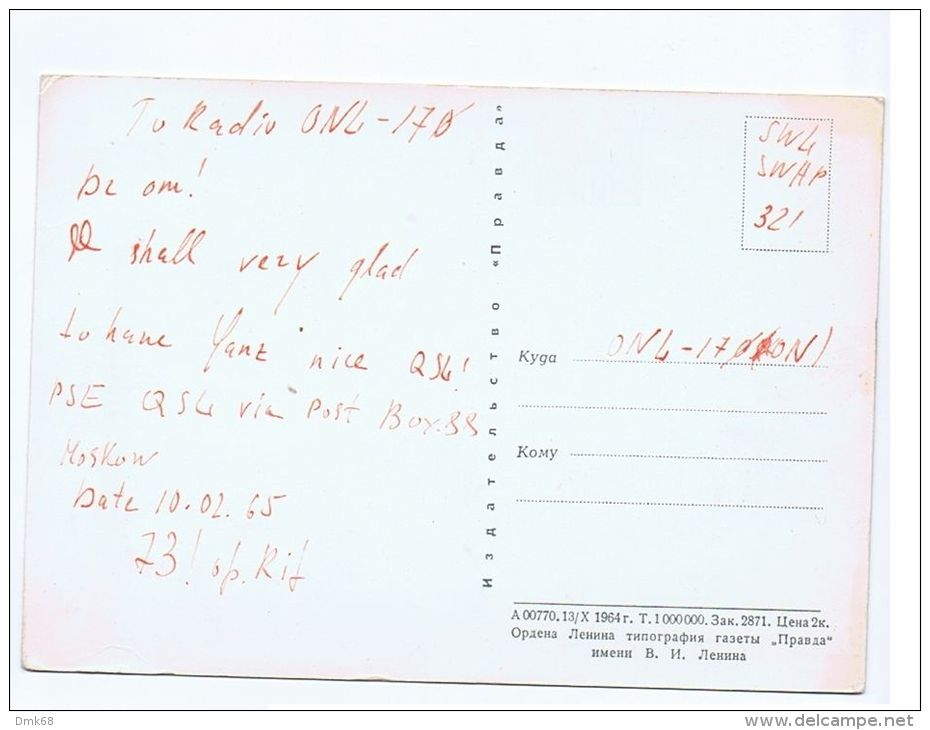 To Radio ONL-17Ø
De om!
I shall very glad
to have Yanz nice QSL!
PSE QSL via Post Box.88
Moskow
Date 10.02.65
73! op. Rif
Издательство «Правда»
SWL
SWAP
321
Куда ONL-17Ø (ON)
Кому
А 00770. 13/X 1964 г. Т. 1000000. Зак. 2871. Цена 2к.
Ордена Ленина типография газеты „Правда“
имени В. И. Ленина
Dmk68
www.delcampe.net